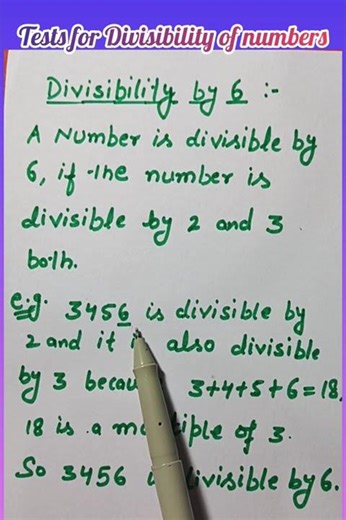 Tests for Divisibility of numbers
Divisibility by 6 :-
A Number is divisible by
6, if the number is
divisible by 2 and 3
both.
e.g. 3456 is divisible by
2 and it also divisible
by 3 3+4+5+6=18,
18 is a of 3.
So 3456 divisible by 6.